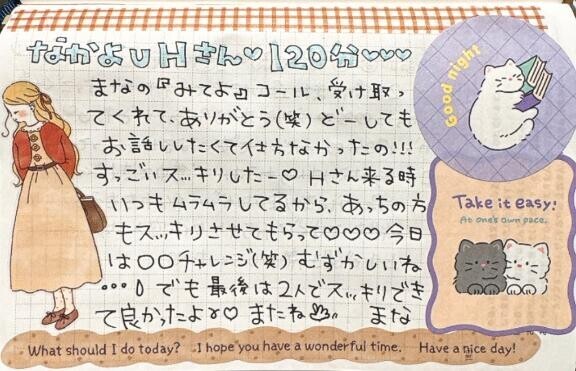 なかよしHさん♡120分♡♡♡
まなの『みてよ』コール、受け取っ
てくれて、ありがとう(笑)どーしても
お話ししたくて仕方なかったの!!!
すっごいスッキリしたー♡ Hさん来る時
いつもムラムラしてるから、あっちの方
もスッキリさせてもらって♡♡♡今日
は〇〇チャレンジ(笑)むずかしいね
…。でも最後は2人でスッキリでき
て良かったよ♡またね まな
Good night
Take it easy!
At one's own pace.
What should I do today? I hope you have a wonderful time. Have a nice day!